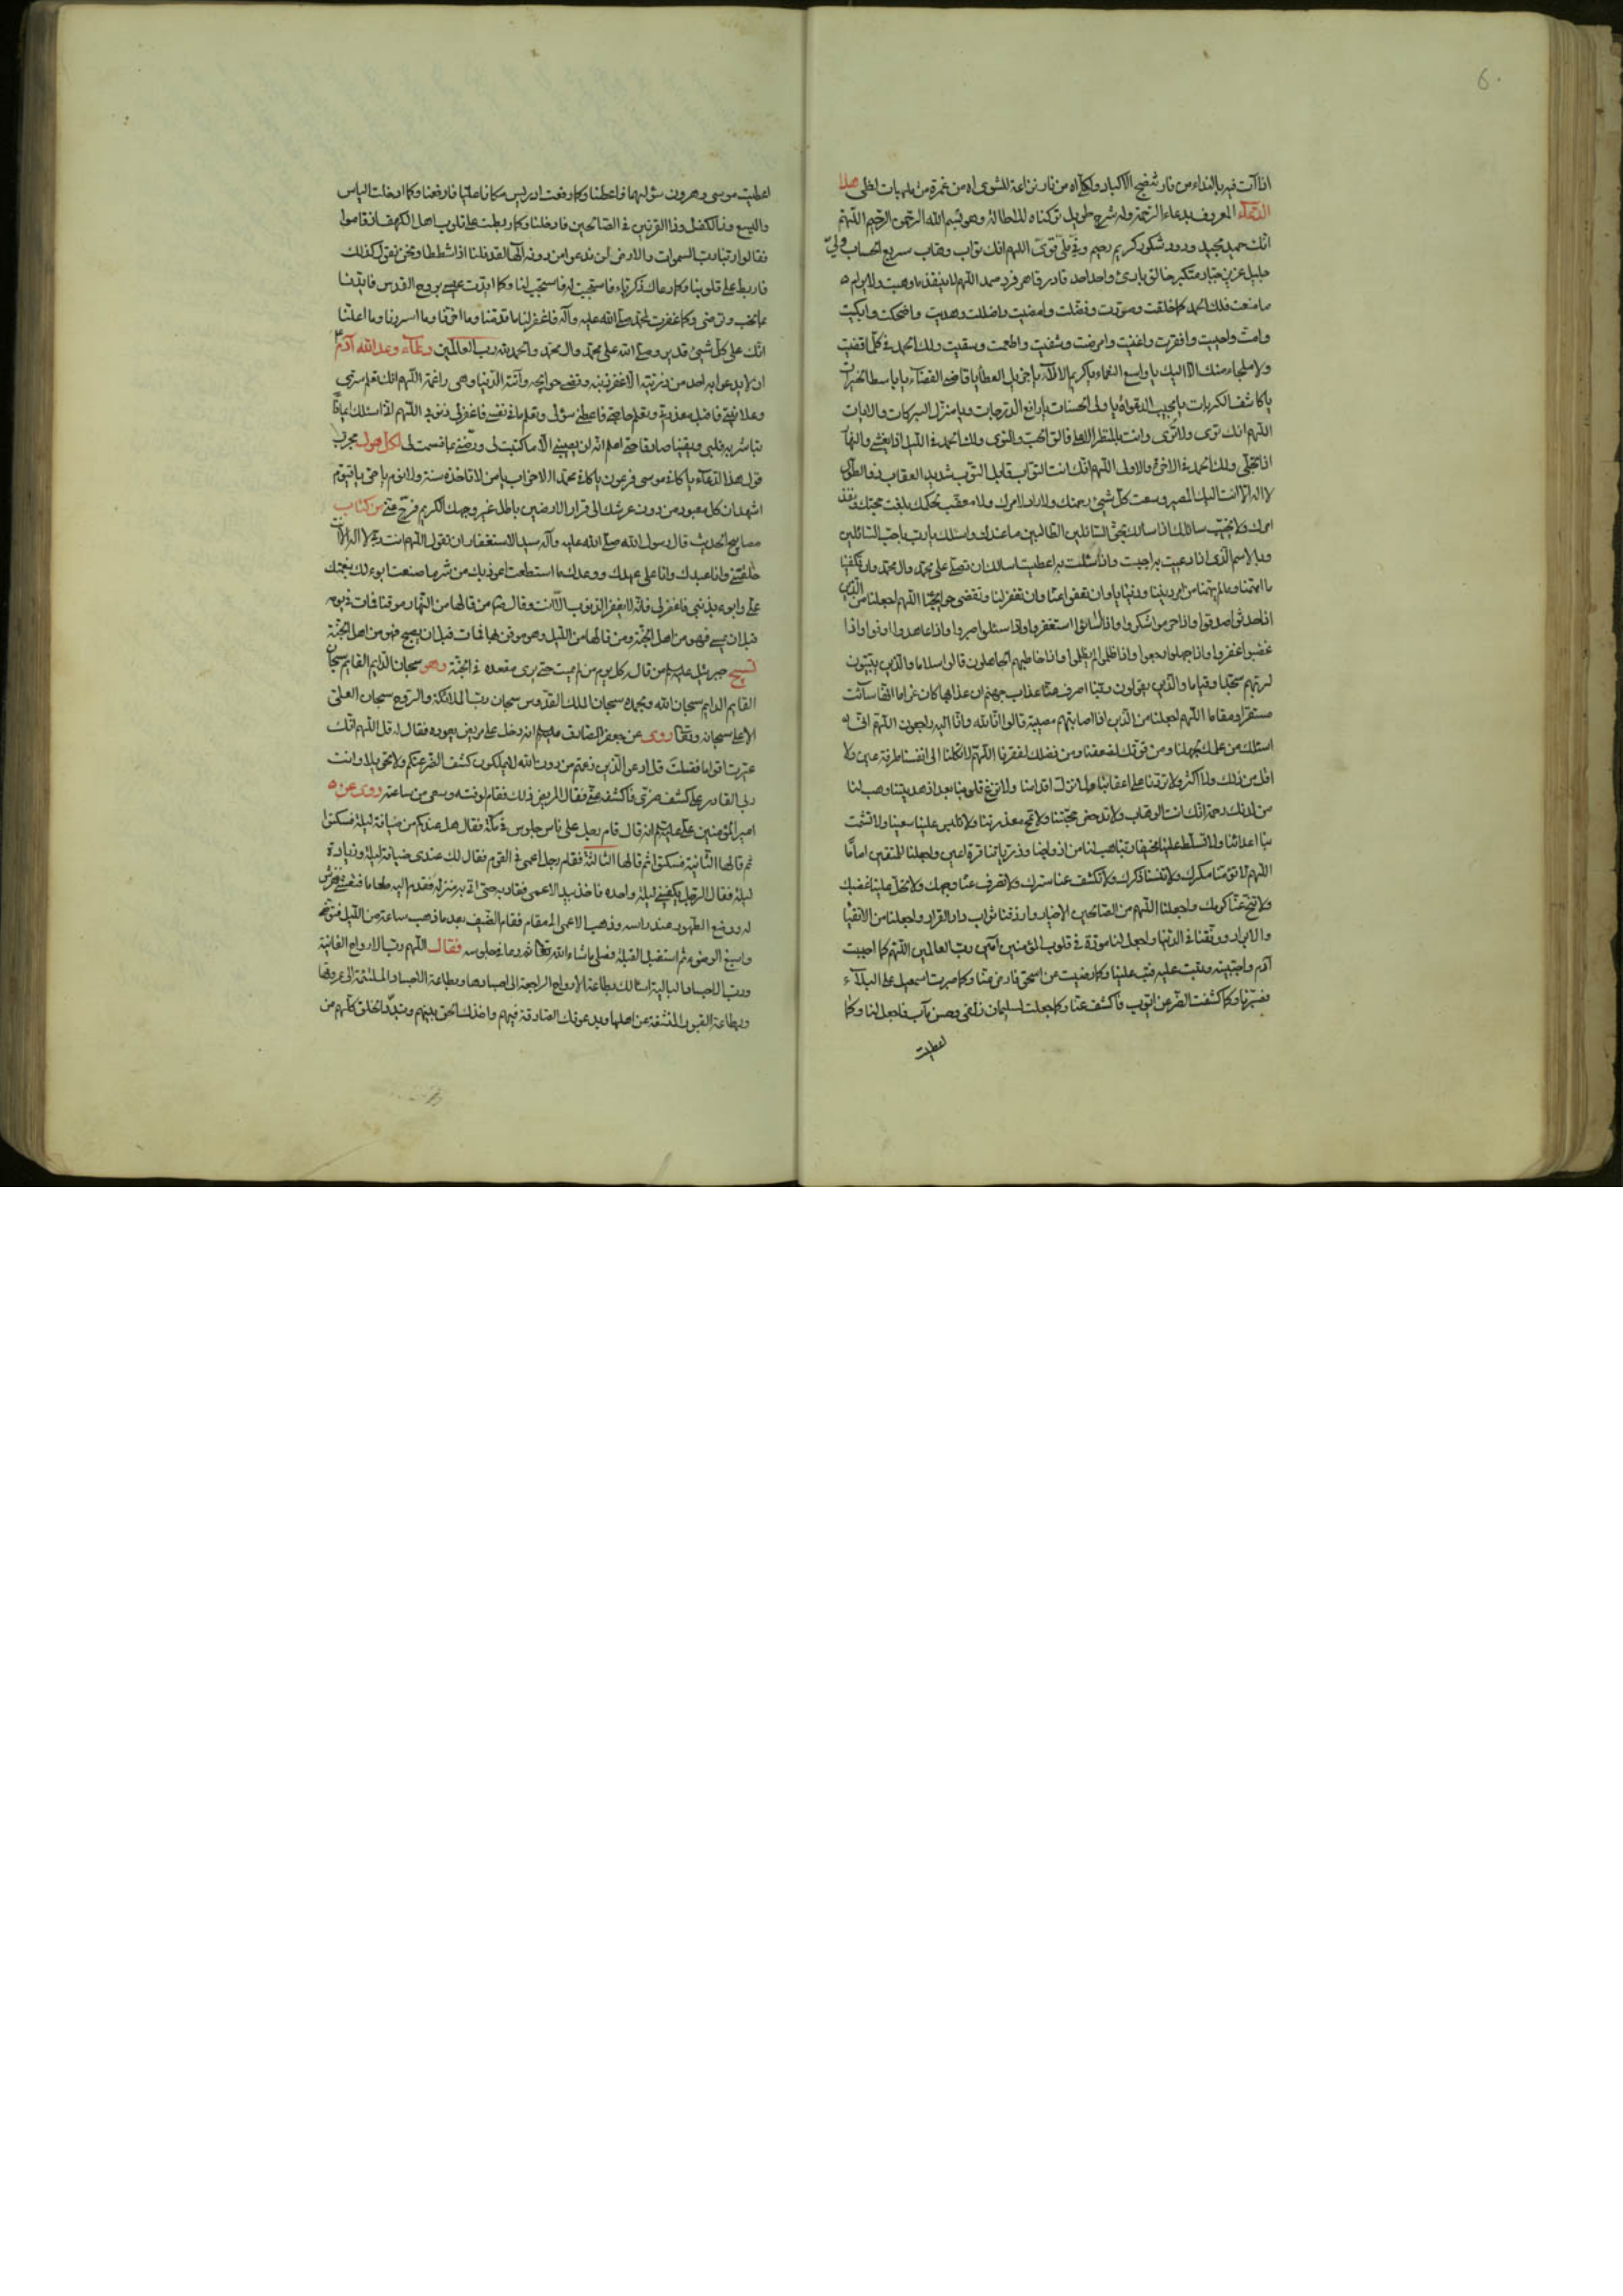 6
اذا آت فيه بالنداء من نار تنضج الاكباد والكلى آه من نار نزاعة للشوى آه من غمرة من ملهبات لظى هذا
الدعاء المعروف بدعاء الرحمة وله شرح طويل تركناه للاطالة وهو بسم الله الرحمن الرحيم اللهم
انك حميد مجيد ودود شكور كريم رحيم وفي ملي قوي اللهم انك تواب وهاب سريع الحساب ولي
جليل عزيز جبار متكبر خالق بارئ واحد احد قادر قاهر فرد صمد اللهم لا ينفذ ما وهبت ولا يرام
ما منعت فلك الحمد كما خلقت وصورت وفضلت وامضيت واضللت وهديت واضحكت وابكيت
وامت واحييت وافقرت واغنيت وامرضت وشفيت واطعمت وسقيت ولك الحمد في كل ما قضيت
ولا ملجاء منك الا اليك يا واسع النعماء يا كريم الآلاء يا جزيل العطايا يا قاضي القضاء يا باسط الخيرات
يا كاشف الكربات يا مجيب الدعوات يا ولي الحسنات يا رافع الدرجات ويا منزل البركات والايات
اللهم انك ترى ولا ترى وانت بالمنظر الاعلى فالق الحب والنوى ولك الحمد في الليل اذا يغشى والنهار
اذا تجلى ولك الحمد في الاخرة والاولى اللهم انك انت التواب قابل التوب شديد العقاب ذو الطول
لا اله الا انت اليك المصير وسعت كل شيئ رحمتك ولا راد لامرك ولا معقب لحكمك بلغت حجتك ونفذ
امرك ولا يخيب سائلك اذا سالك بحق السائلين الطالبين ما عندك واسئلك يا رب باحب السائلين
وبالاسم الذي اذا دعيت به اجبت واذا سئلت به اعطيت اسالك ان تصلي على محمد وال محمد وان تكفينا
ما اهمنا وما لم يهمنا من امر ديننا ودنيانا وان تعفو عنا وان تغفر لنا وتقضي حوايجنا اللهم اجعلنا من الذين
اذا حدثوا صدقوا واذا حرموا شكروا واذا اساؤا استغفروا واذا سئلوا صبروا واذا عاهدوا اوفوا واذا
غضبوا غفروا واذا جهلوا رجعوا واذا ظلموا لم يظلموا واذا خاطبهم الجاهلون قالوا سلاما والذين يبيتون
لربهم سجدا وقياما والذين يقولون ربنا اصرف عنا عذاب جهنم ان عذابها كان غراما انها سائت
مستقرا ومقاما اللهم اجعلنا من الذين اذا اصابتهم مصيبة قالوا انا لله وانا اليه راجعون اللهم اني
اسئلك من علمك لجهلنا ومن قوتك لضعفنا ومن فضلك لفقرنا اللهم لا تكلنا الى انفسنا طرفة عين ولا
اقل من ذلك ولا اكثر ولا تردنا على اعقابنا ولا تزل اقدامنا ولا تزغ قلوبنا بعد اذ هديتنا وهب لنا
من لدنك رحمة انك انت الوهاب ولا تدحض حجتنا ولا تمح معذرتنا ولا تلبس علينا سعينا ولا تشمت
بنا اعدائنا ولا تسلط علينا مخيفا ربنا هب لنا من ازواجنا وذرياتنا قرة اعين واجعلنا للمتقين اماما
اللهم لا تؤمنا مكرك ولا تنسنا ذكرك ولا تكشف عنا سترك ولا تصرف عنا وجهك ولا تحل علينا غضبك
ولا تنح عنا كرمك واجعلنا اللهم من الصالحين الاخيار وارزقنا ثواب دار القرار واجعلنا من الاتقياء
والابرار ووفقنا في الدنيا واجعل لنا مودة في قلوب المؤمنين آمين رب العالمين اللهم كما اجبت
آدم واجتبيته وتبت عليه فتب علينا وكما رضيت من اسحق فارض عنا وكما صبرت اسمعيل على البلاء
فصبرنا وكما كشفت الضر عن ايوب فاكشف عنا وكما جعلت لسليمان زلفى وحسن مآب فاجعل لنا وكما
اعطيت
اعطيت موسى وهرون سؤلهما فاعطنا وكما رفعت ادريس مكانا عليا فارفعنا وكما ادخلت الياس
واليسع وذا الكفل وذا القرنين في الصالحين فادخلنا وكما ربطت على قلوب اهل الكهف اذ قاموا
فقالوا ربنا رب السموات والارض لن ندعو من دونه الها لقد قلنا اذا شططا ونحن نقول كذلك
فاربط على قلوبنا وكما دعاك زكرياء فاستجبت له فاستجب لنا وكما ايدت عيسى بروح القدس فايدنا
بما تحب وترضى وكما غفرت لمحمد صلى الله عليه وآله فاغفر لنا ما قدمنا وما اخرنا وما اسررنا وما اعلنا
انك على كل شيئ قدير وصلى الله على محمد وال محمد والحمد لله رب العالمين دعاء وعد الله آدم
ان لا يدعو به احد من ذريته الا غفر ذنبه وقضى حوايجه وآتته الدنيا وهي راغمة اللهم انك تعلم سري
وعلانيتي فاقبل معذرتي وتعلم حاجتي فاعطني سؤلي وتعلم ما في نفسي فاغفر لي ذنوبي اللهم اني اسئلك ايمانا
تباشر به قلبي ويقينا صادقا حتى اعلم انه لن يصيبني الا ما كتبت لي ورضني بما قسمت لي لكل هول مجرب
قول هذا الدعاء يا كافي موسى فرعون يا كافي محمد الاحزاب يا من لا تاخذه سنة ولا نوم يا حي يا قيوم
اشهد ان كل معبود من دون عرشك الى قرار الارضين باطل غير وجهك الكريم فرج عني من كتاب
مصابيح الحديث قال رسول الله صلى الله عليه وآله سيد الاستغفار ان تقول اللهم انت ربي لا اله الا انت
خلقتني وانا عبدك وانا على عهدك ووعدك ما استطعت اعوذ بك من شر ما صنعت ابوء لك بنعمتك
علي وابوء بذنبي فاغفر لي فانه لا يغفر الذنوب الا انت وقال من قالها من النهار موقنا فمات في يومه
قبل ان يمسي فهو من اهل الجنة ومن قالها من الليل وهو موقن بها فمات قبل ان يصبح فهو من اهل الجنة
تسبيح جبرئيل عليه من قال كل يوم مرة لم يمت حتى يرى مقعده في الجنة وهو سبحان الدايم القايم سبحان
القايم الدايم سبحان الله وبحمده سبحان الملك القدوس سبحان رب الملائكة والروح سبحان العلي
الاعلى سبحانه وتعالى روى عن جعفر الصادق عليه انه دخل على مريض يعوده فقال له قل اللهم انك
عيرت اقواما فقلت قل ادعوا الذين زعمتم من دون الله لا يملكون كشف الضر عنكم ولا تحويلا وانت
ربي القادر على كشف ضري فاكشفه عني فقال المريض ذلك فقام لوقته وسعى من ساعته روى عن
امير المؤمنين علي عليه انه قال قام رجل على ناس جلوس في مكة فقال هل عندكم من ضيافة ليلة فسكتوا
ثم قالها الثانية فسكتوا ثم قالها الثالثة فقام رجل اعمى في القوم فقال لك عندي ضيافة ليلة وزيادة
ليلة فقال الرجل يكفيني ليلة واحدة فاخذ بيد الاعمى فقاد به حتى اتى به منزله فقدم اليه طعاما فتعشى ففرش
له ووضع الطهور عند راسه وذهب الاعمى الى مقام فقام الضيف بعد ما ذهب ساعة من الليل فتوضا
واسبغ الوضوء ثم استقبل القبلة فصلى ما شاء الله تعالى ثم دعا في جلوسه فقال اللهم رب الارواح الفانية
ورب الاجساد البالية اسئالك بطاعة الارواح الراجعة الى اجسادها وبطاعة الاجساد الملتئمة الى عروقها
وبطاعة القبور المنشقة عن اهلها وبدعوتك الصادقة فيهم واخذك الحق بينهم الخلائق كلهم من